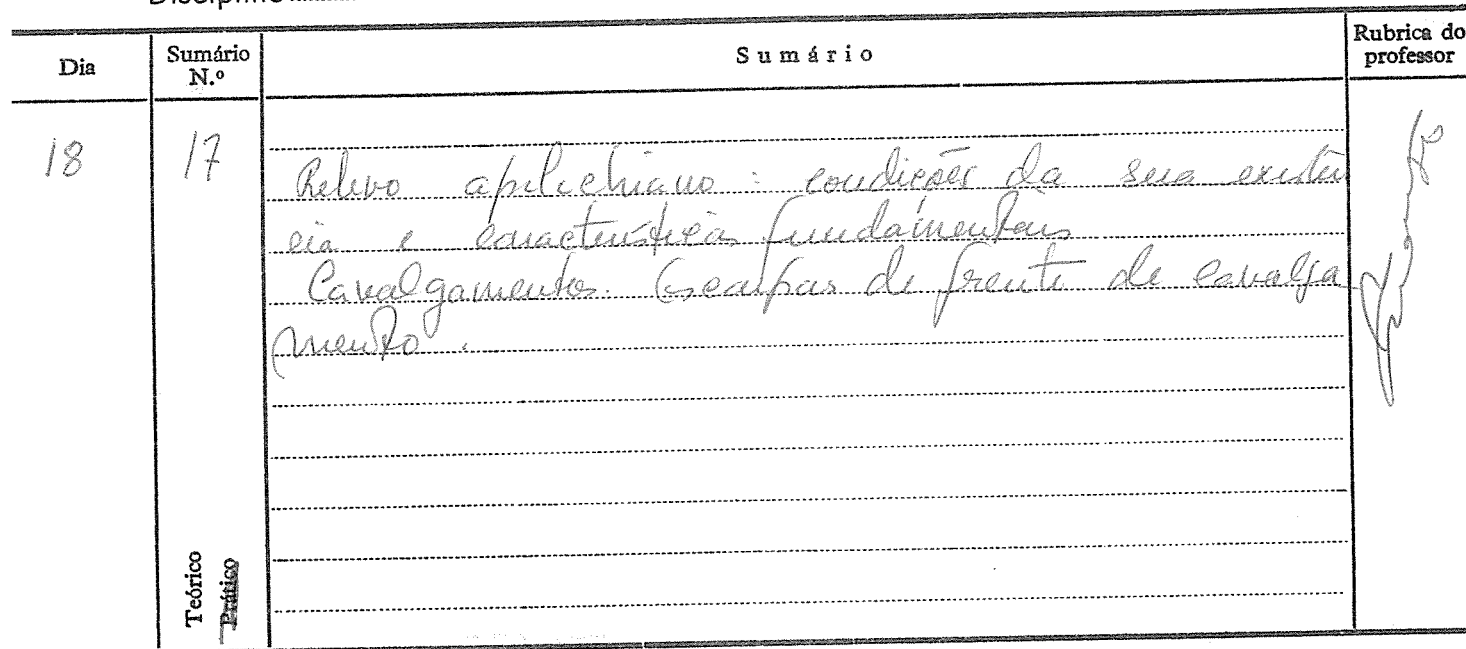 Dia Sumário N.º Sumário Rubrica do professor
18 17 Relevo apalachiano : condições da sua existên
cia e características fundamentais
Cavalgamentos. Escarpas de frente de cavalga
mento.
Teórico
Prático